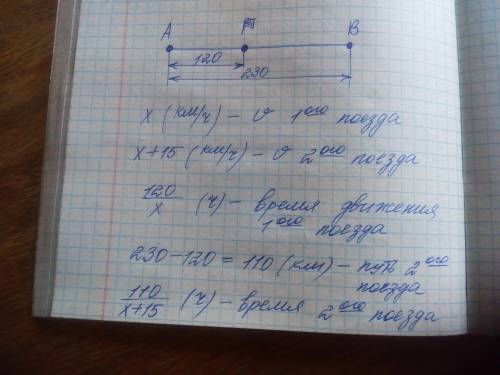 A В
120
230
x (км/ч) – v 1ого поезда
x+15 (км/ч) – v 2ого поезда
120/x (ч) – время движения
1ого поезда
230–120 = 110 (км) – путь 2ого
поезда
110/x+15 (ч) – время 2ого поезда